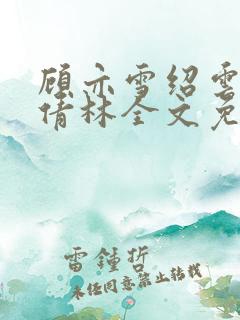 顾亦雪绍雲
倩林全文免
雷鍾哲
未经同意禁止转载